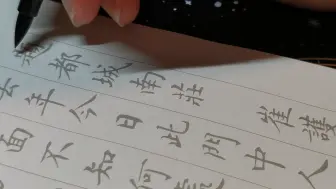 題都城南莊 崔護
去年今日此門中人
面不知何處